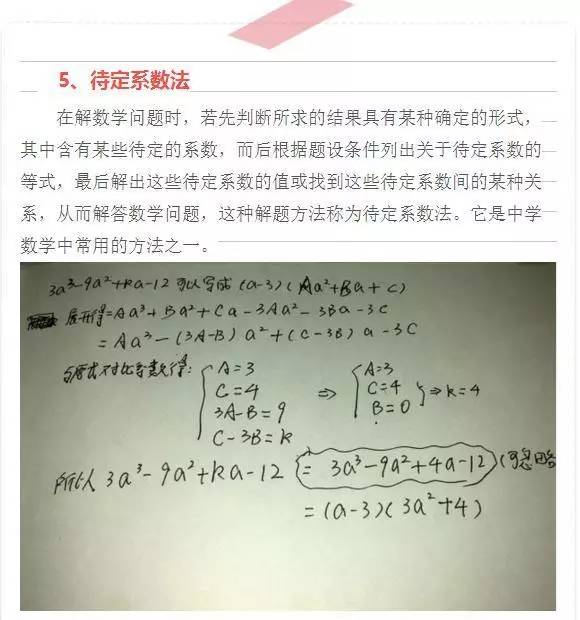 5、待定系数法
在解数学问题时，若先判断所求的结果具有某种确定的形式，
其中含有某些待定的系数，而后根据题设条件列出关于待定系数的
等式，最后解出这些待定系数的值或找到这些待定系数间的某种关
系，从而解答数学问题，这种解题方法称为待定系数法。它是中学
数学中常用的方法之一。
3a³-9a²+ka-12 可以写成 (a-3)(Aa²+Ba+C)
展开得=Aa³+Ba²+Ca-3Aa²-3Ba-3C
=Aa³-(3A-B)a²+(C-3B)a-3C
与原式对比系数得: { A=3 ⇒ { A=3
C=4 C=4 } ⇒ k=4
3A-B=9 B=0
C-3B=k
所以 3a³-9a²+ka-12 = 3a³-9a²+4a-12 (可忽略
=(a-3)(3a²+4)